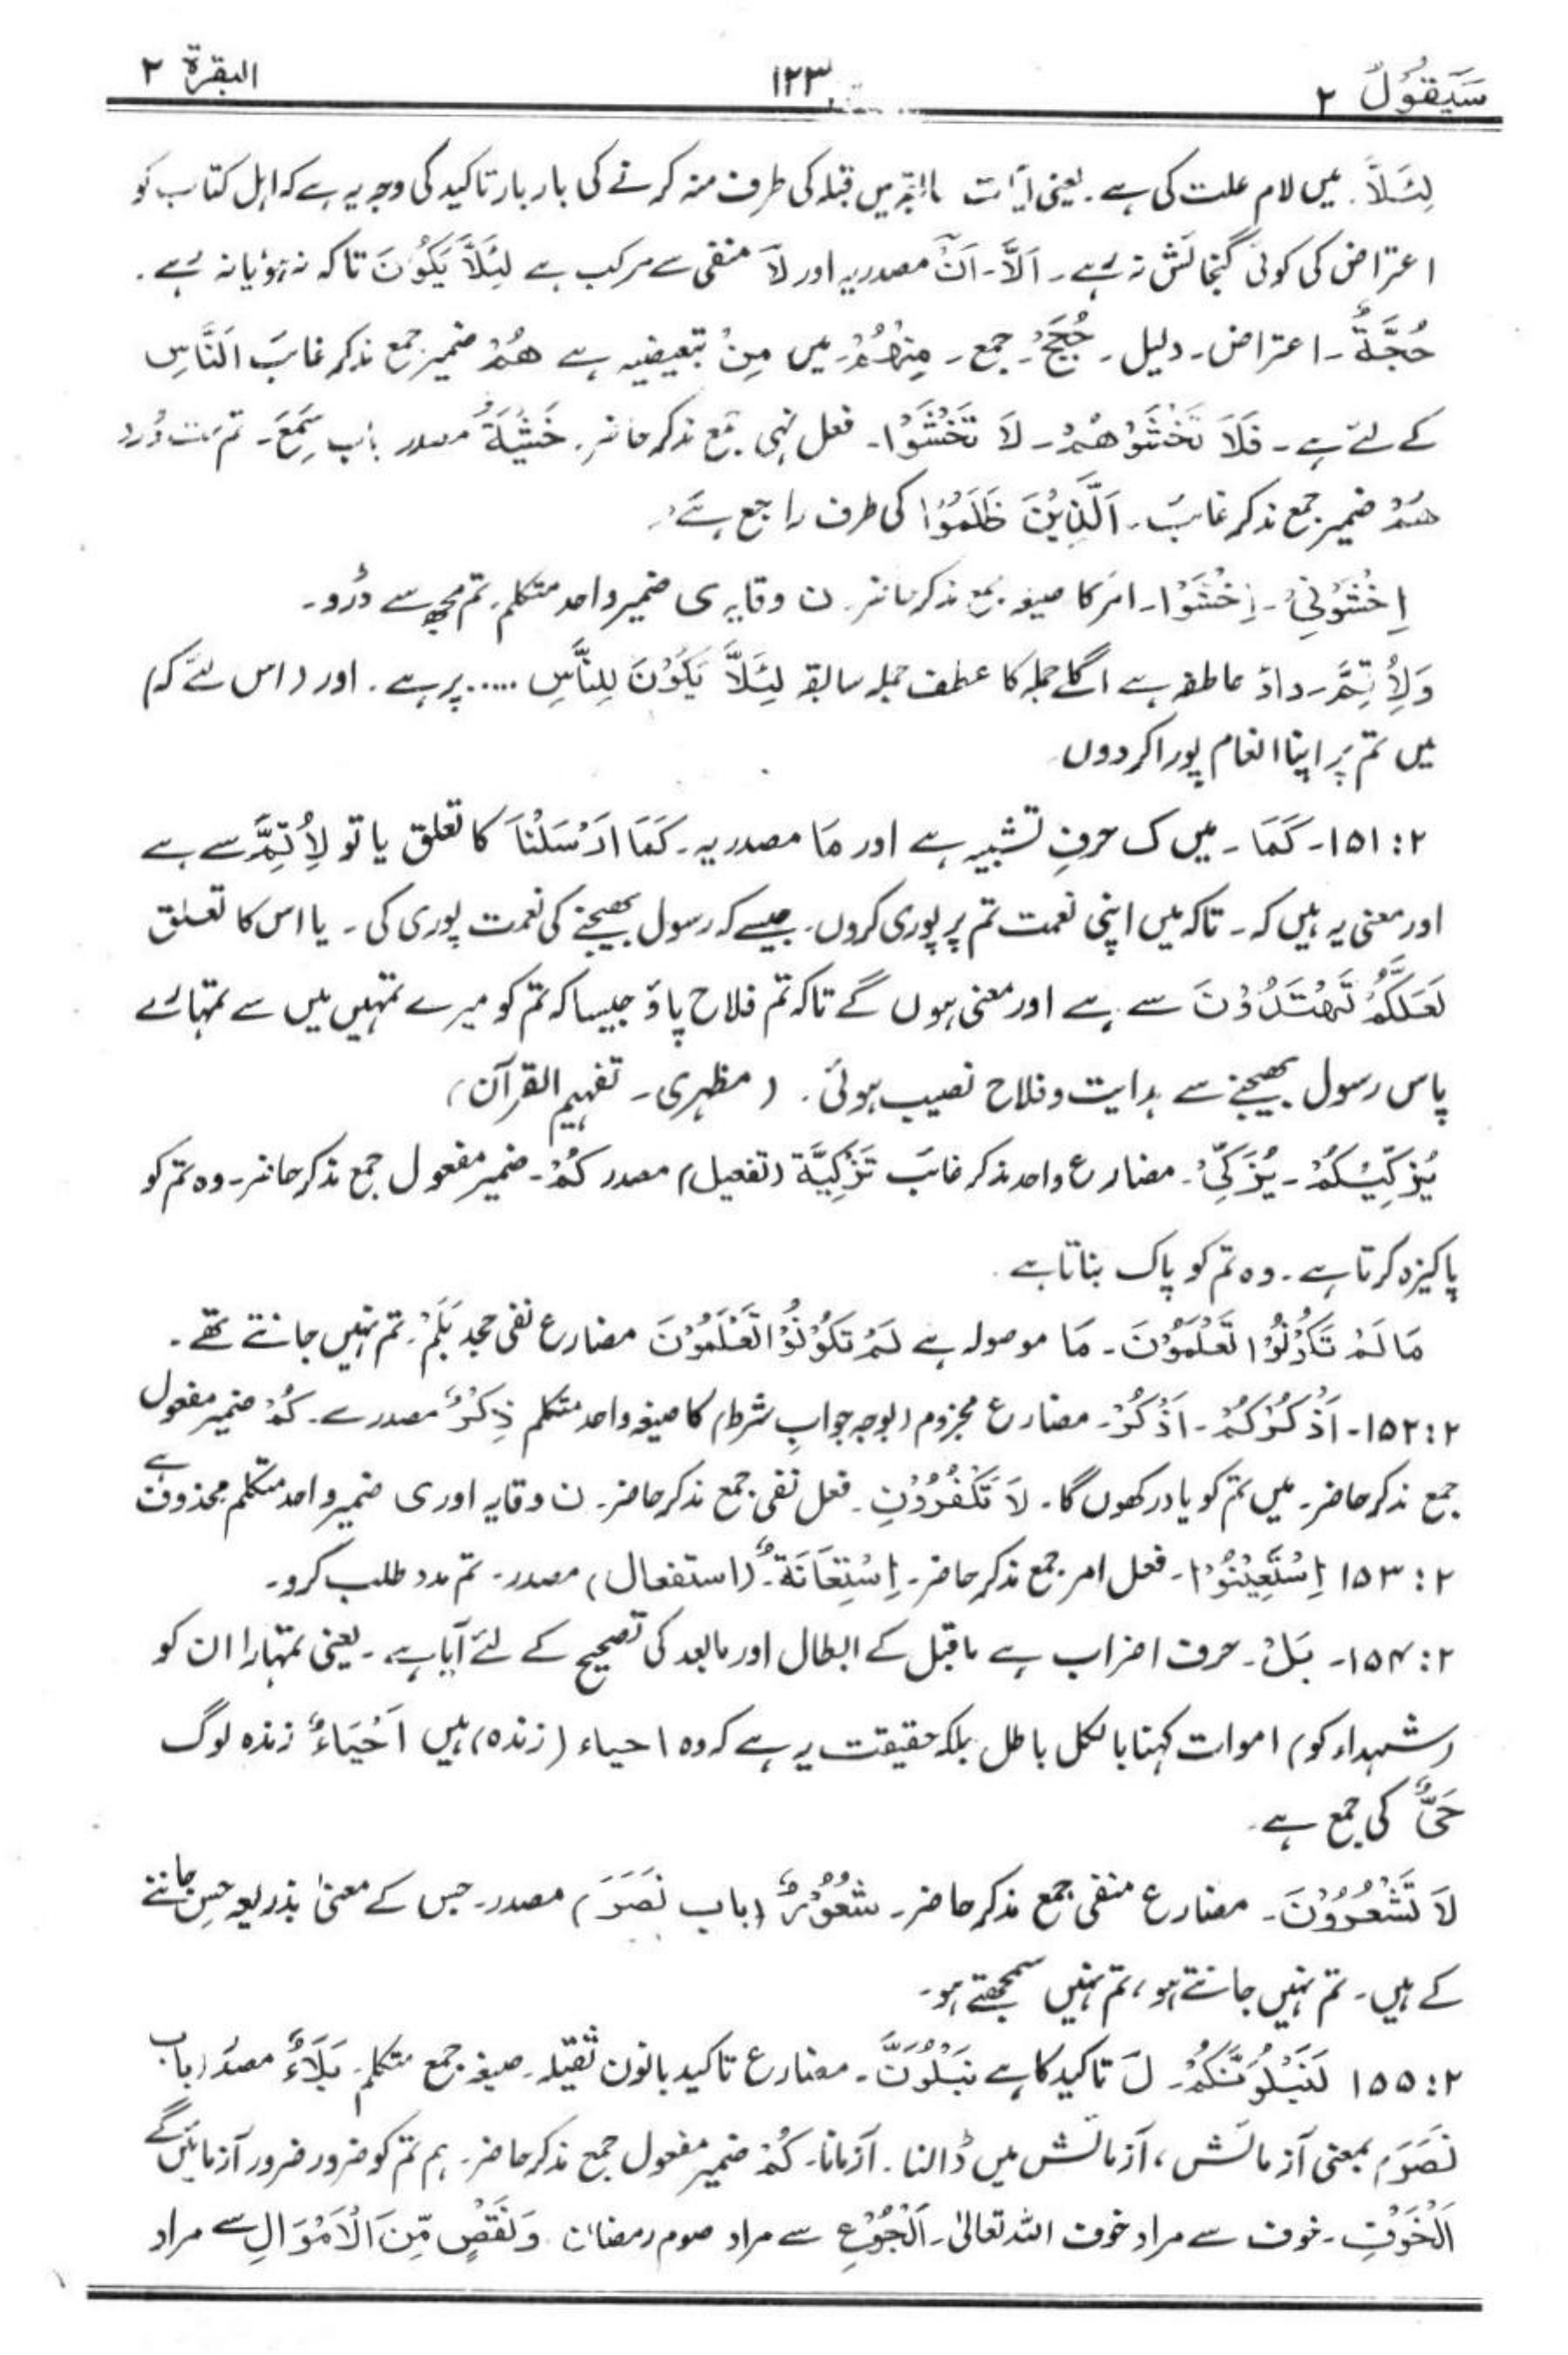 سَيَقُوْلُ ٢ ١٢٣ البقرة ٢
لِئَلَّا۔ میں لام علت کی ہے۔ یعنی آیات بالا میں قبلہ کی طرف منہ کرنے کی بار بار تاکید کی وجہ یہ ہے کہ اہل کتاب کو
اعتراض کی کوئی گنجائش نہ رہے۔ اَلَّا۔ اَنْ مصدریہ اور لَا منفی سے مرکب ہے لِئَلَّا يَكُوْنَ تاکہ نہ ہو یا نہ رہے۔
حُجَّةٌ۔ اعتراض۔ دلیل۔ حُجَجٌ۔ جمع۔ مِنْهُمْ۔ میں مِنْ تبعیضیہ ہے هُمْ ضمیر جمع مذکر غائب اَلنَّاسِ
کے لئے ہے۔ فَلَا تَخْشَوْهُمْ۔ لَا تَخْشَوْا۔ فعل نہی جمع مذکر حاضر۔ خَشْيَةٌ مصدر باب سَمِعَ۔ تم مت ڈرو
هُمْ ضمیر جمع مذکر غائب۔ اَلَّذِيْنَ ظَلَمُوْا کی طرف راجع ہے۔
اِخْشَوْنِيْ۔ اِخْشَوْا۔ امر کا صیغہ جمع مذکر حاضر۔ ن وقایہ ی ضمیر واحد متکلم۔ تم مجھ سے ڈرو۔
وَلِاُتِمَّ۔ واؤ عاطفہ ہے اگلے جملہ کا عطف جملہ سابقہ لِئَلَّا يَكُوْنَ لِلنَّاسِ ..... پر ہے۔ اور (اس لئے کہ)
میں تم پر اپنا انعام پورا کر دوں
٢:١٥١۔ كَمَا۔ میں ک حرفِ تشبیہ ہے اور مَا مصدریہ۔ كَمَا اَرْسَلْنَا کا تعلق یا تو لِاُتِمَّ سے ہے
اور معنی یہ ہیں کہ۔ تاکہ میں اپنی نعمت تم پر پوری کروں۔ جیسے کہ رسول بھیجنے کی نعمت پوری کی۔ یا اس کا تعلق
لَعَلَّكُمْ تَهْتَدُوْنَ سے ہے اور معنی ہوں گے تاکہ تم فلاح پاؤ جیسا کہ تم کو میرے تمہیں میں سے تمہارے
پاس رسول بھیجنے سے ہدایت و فلاح نصیب ہوئی۔ (مظہری۔ تفہیم القرآن)
يُزَكِّيْكُمْ۔ يُزَكِّيْ۔ مضارع واحد مذکر غائب تَزْكِيَّة (تفعیل) مصدر كُمْ۔ ضمیر مفعول جمع مذکر حاضر۔ وہ تم کو
پاکیزہ کرتا ہے۔ وہ تم کو پاک بناتا ہے۔
مَا لَمْ تَكُوْنُوْا تَعْلَمُوْنَ۔ مَا موصولہ ہے لَمْ تَكُوْنُوْا تَعْلَمُوْنَ مضارع نفی جحد بَلَمْ۔ تم نہیں جانتے تھے۔
٢:١٥٢۔ اَذْكُرْكُمْ۔ اَذْكُرْ۔ مضارع مجزوم (بوجہ جوابِ شرط) کا صیغہ واحد متکلم ذِكْرٌ مصدر سے۔ كُمْ ضمیر مفعول
جمع مذکر حاضر۔ میں تم کو یاد رکھوں گا۔ لَا تَكْفُرُوْنِ۔ فعل نفی جمع مذکر حاضر۔ ن وقایہ اور ی ضمیر واحد متکلم محذوف ہے
٢:١٥٣ اِسْتَعِيْنُوْا۔ فعل امر جمع مذکر حاضر۔ اِسْتِعَانَةٌ۔ (استفعال) مصدر۔ تم مدد طلب کرو۔
٢:١٥٤۔ بَلْ۔ حرف اضراب ہے ماقبل کے ابطال اور مابعد کی تصحیح کے لئے آیا ہے۔ یعنی تمہارا ان کو
(شہداء کو) اموات کہنا بالکل باطل بلکہ حقیقت یہ ہے کہ وہ احیاء (زندہ) ہیں اَحْيَاءٌ زندہ لوگ
حَيٌّ کی جمع ہے۔
لَا تَشْعُرُوْنَ۔ مضارع منفی جمع مذکر حاضر۔ شُعُوْرٌ (باب نَصَرَ) مصدر۔ جس کے معنیٰ بذریعہ حِس جاننے
کے ہیں۔ تم نہیں جانتے ہو، تم نہیں سمجھتے ہو۔
٢:١٥٥ لَنَبْلُوَنَّكُمْ۔ لَ تاکید کا ہے نَبْلُوَنَّ۔ مضارع تاکید بانون ثقیلہ۔ صیغہ جمع متکلم۔ بَلَاءٌ مصدر (باب
نَصَرَ) بمعنی آزمائش، آزمائش میں ڈالنا۔ آزمانا۔ كُمْ ضمیر مفعول جمع مذکر حاضر۔ ہم تم کو ضرور ضرور آزمائیں گے
اَلْخَوْفِ۔ خوف سے مراد خوف اللہ تعالیٰ۔ اَلْجُوْعِ سے مراد صوم رمضان۔ وَنَقْصٍ مِّنَ الْاَمْوَالِ سے مراد